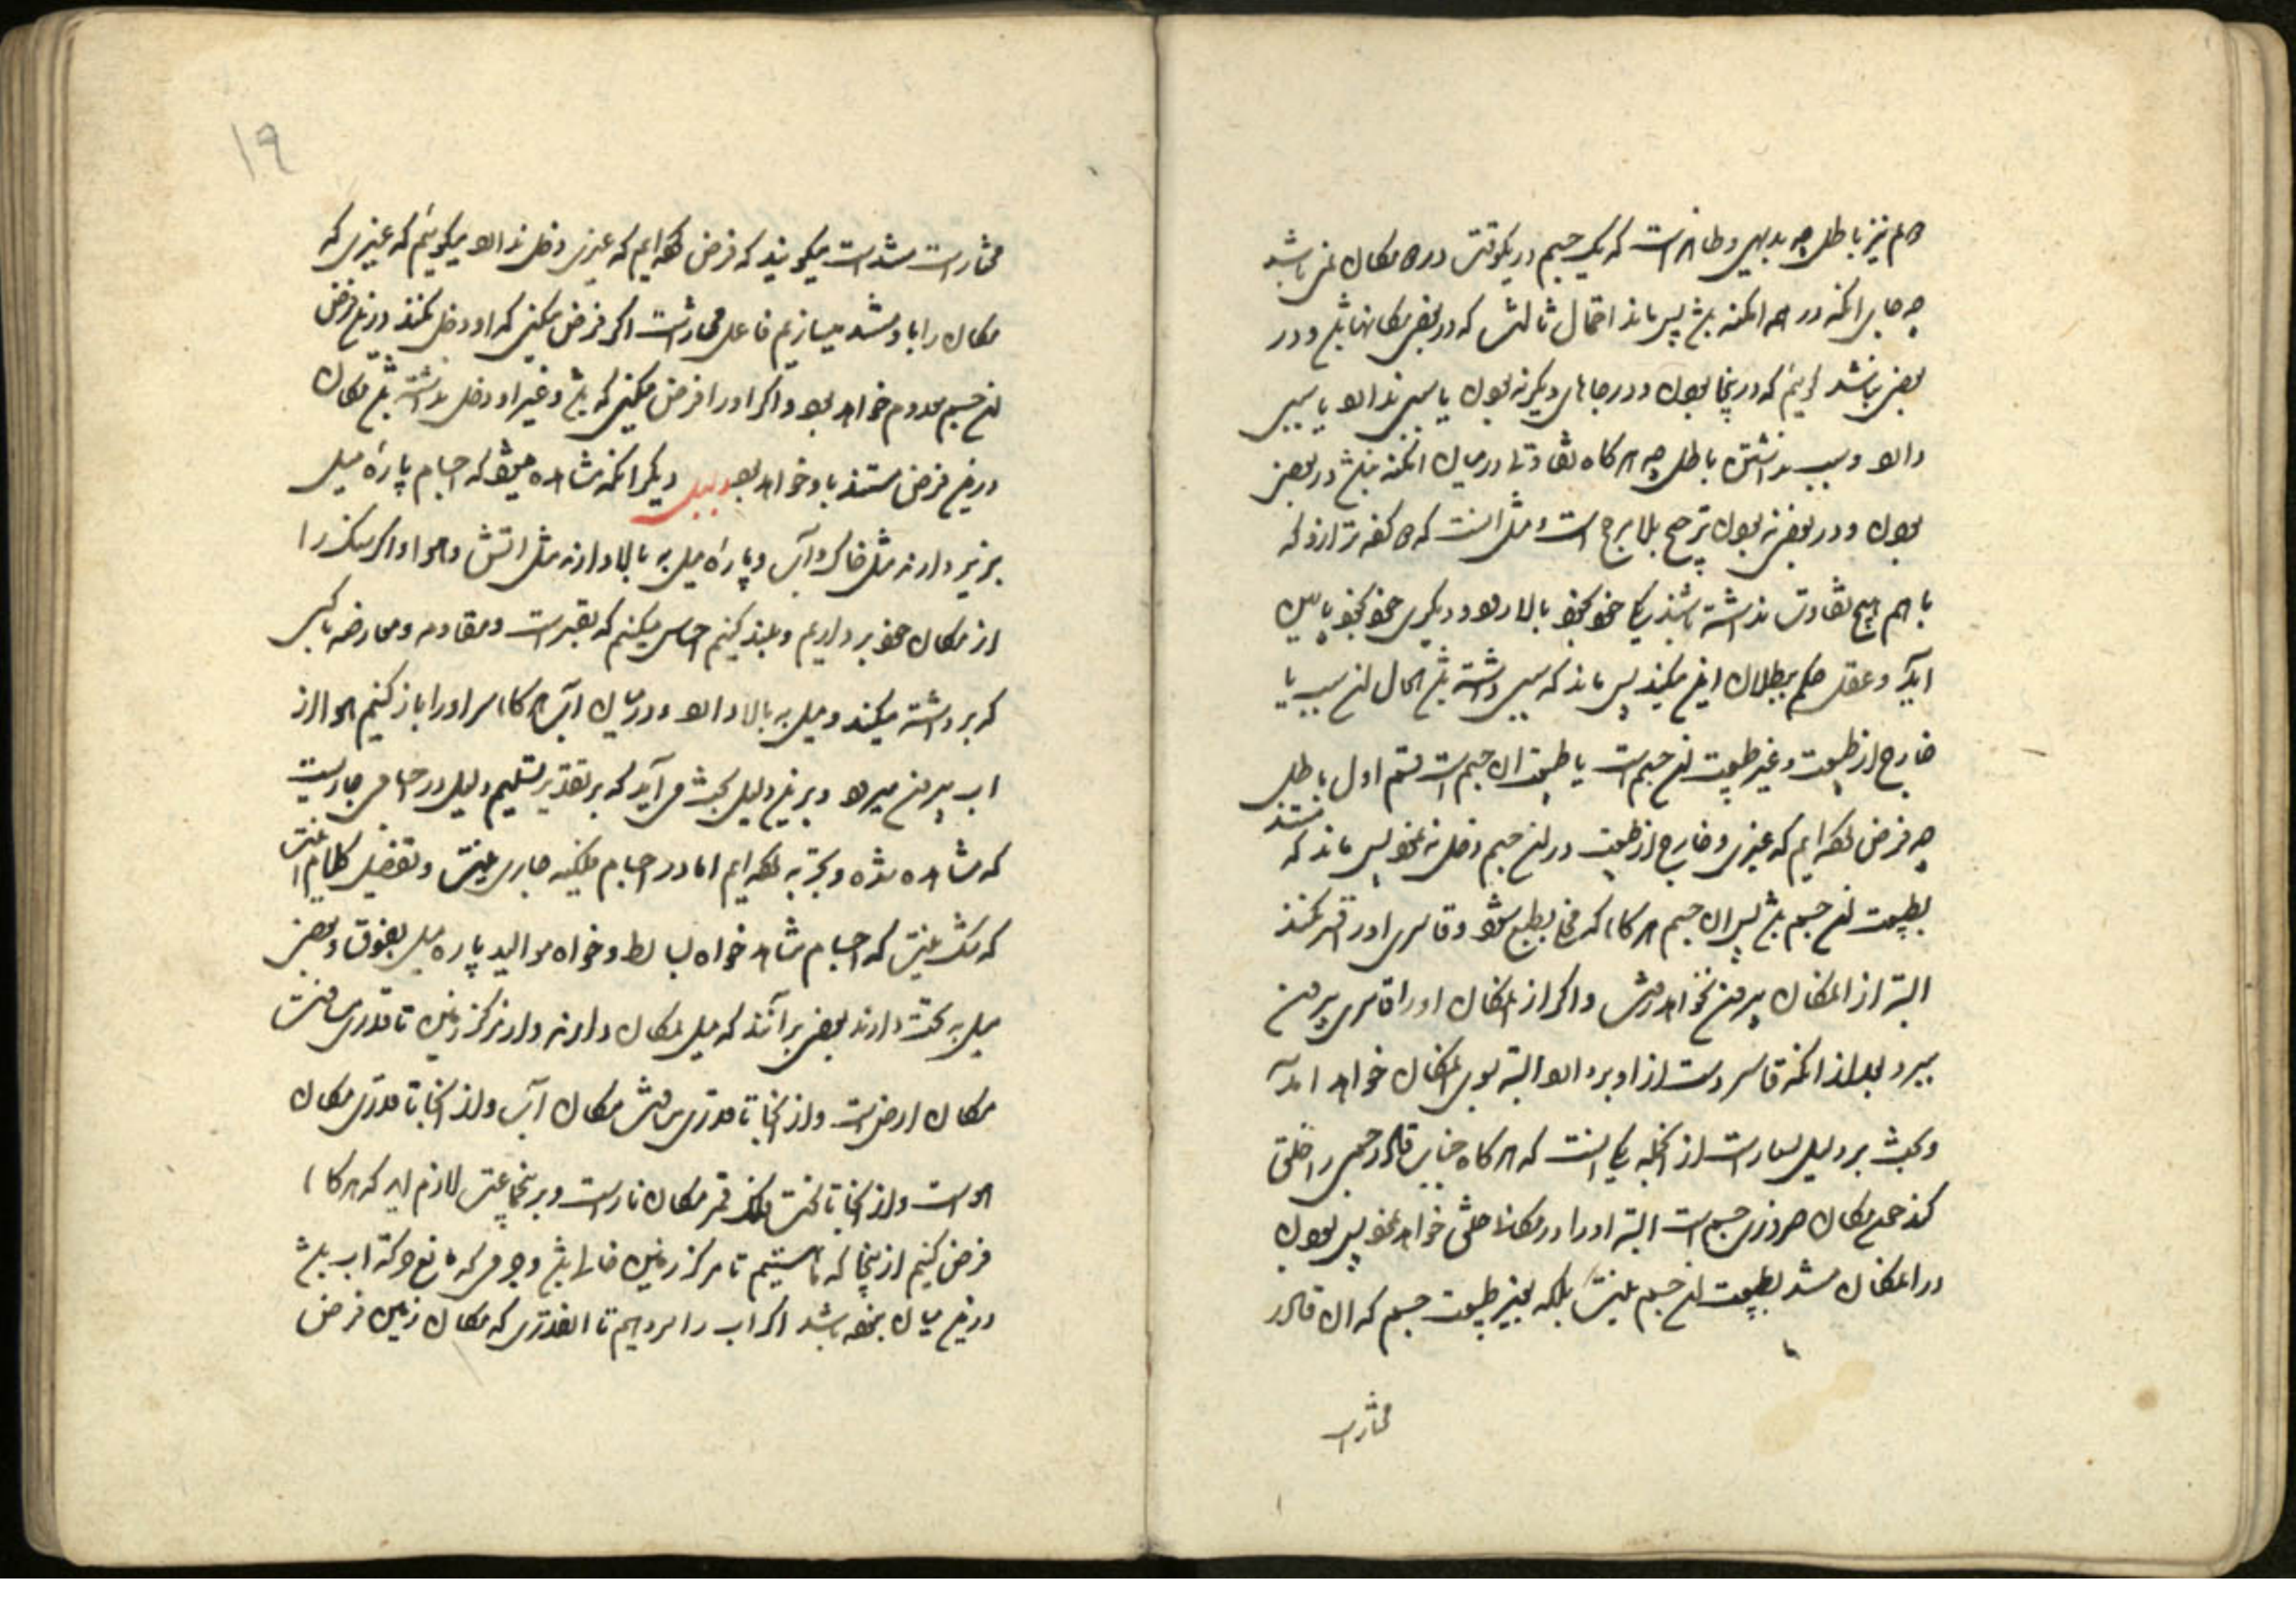 هم نیز باطل چه بدیهی و ظاهر است که یک جسم در یکوقت در دو مکان نمی باشد
چه جای آنکه در همه امکنه باشد پس ماند احتمال ثالث که در بعضی مکانها باشد و در
بعضی نباشد که در اینجا بودن و در جاهای دیگر نبودن یا سببی ندارد یا سببی
دارد و سبب نداشتن باطل چه هرگاه تفاوتی در میان امکنه نباشد در بعضی
بودن و در بعضی نبودن ترجیح بلا مرجح است و مثل اینست که دو کفه ترازو که
با هم هیچ تفاوت نداشته باشند یکی خود بخود بالا رود و دیگری خود بخود پایین
آید و عقل حکم ببطلان این میکند پس ماند که سببی داشته باشد الحال آن سبب یا
خارج از طبیعت و غیر طبیعت آن جسم است یا طبیعت آن جسم است قسم اول باطل
چه فرض کرده ایم که غیری و خارج از طبیعت در آن جسم دخل نه نمود پس ماند که مستند
بطبیعت آن جسم باشد پس آن جسم هرگاه که مخلی بطبع شود و قاسری او را قسر نکند
البته از آن مکان بیرون نخواهد رفت و اگر از آن مکان او را قاسری بیرون
ببرد بعد از آنکه قاسر دست از او بردارد البته بسوی آن مکان خواهد آمد
و بحث بر دلیل بسیار است از آنجمله یکی اینست که هرگاه جناب قادر جسمی را خلق
کند چون مکان ضروری جسم است البته او را در مکانی خلق خواهد نمود پس بودن
در آن مکان مستند بطبیعت آن جسم نیست بلکه بغیر طبیعت جسم که آن قادر
مختار است
۱۹
مختار است شده است میگویند که فرض کرده ایم که غیری دخل ندارد میگوییم که غیری که
مکان را باو مستند میسازیم فاعل مختار است اگر فرض میکنی که او دخل نکند در این فرض
آن جسم معدوم خواهد بود و اگر او را فرض میکنی که باشد و غیر او دخل نداشته باشد مکان
در این فرض مستند باو خواهد بود دلیل دیگر آنکه مشاهده میشود که اجسام پاره میل
بزیر دارند مثل خاک و آب و پاره میل به بالا دارند مثل آتش و هوا و اگر سنگ را
از مکان خود برداریم و بلند کنیم احساس میکنیم که بقسر است و مقاومه و معارضه با کسی
که برداشته میکند و میل به بالا دارد و در میان آب هرگاه سر او را باز کنیم هوا از
آب بیرون میرود و بر این دلیل بحث می آید که بر تقدیر تسلیم دلیل در اجسامی جاریست
که مشاهده شده و تجربه کرده ایم اما در اجسام فلکیه جاری نیست و تفصیل کلام آنست
که شک نیست که اجسام مشاهد خواه بسایط و خواه موالید پاره میل بفوق و بعضی
میل به تحت دارند بعضی برآنند که میل بمکان دارند و از مرکز زمین تا قدری مسافت
مکان ارض است و از آنجا تا قدری مسافت مکان آب و از آنجا تا قدری مکان
هواست و از آنجا تا تحت فلک قمر مکان نار است و بر این جماعت لازم آید که هرگاه
فرض کنیم از اینجا که ما هستیم تا مرکز زمین خالی باشد و جرمی که مانع حرکت آب باشد
در این میان نبوده باشد اگر آب را سر دهیم تا آنقدری که مکان زمین فرض